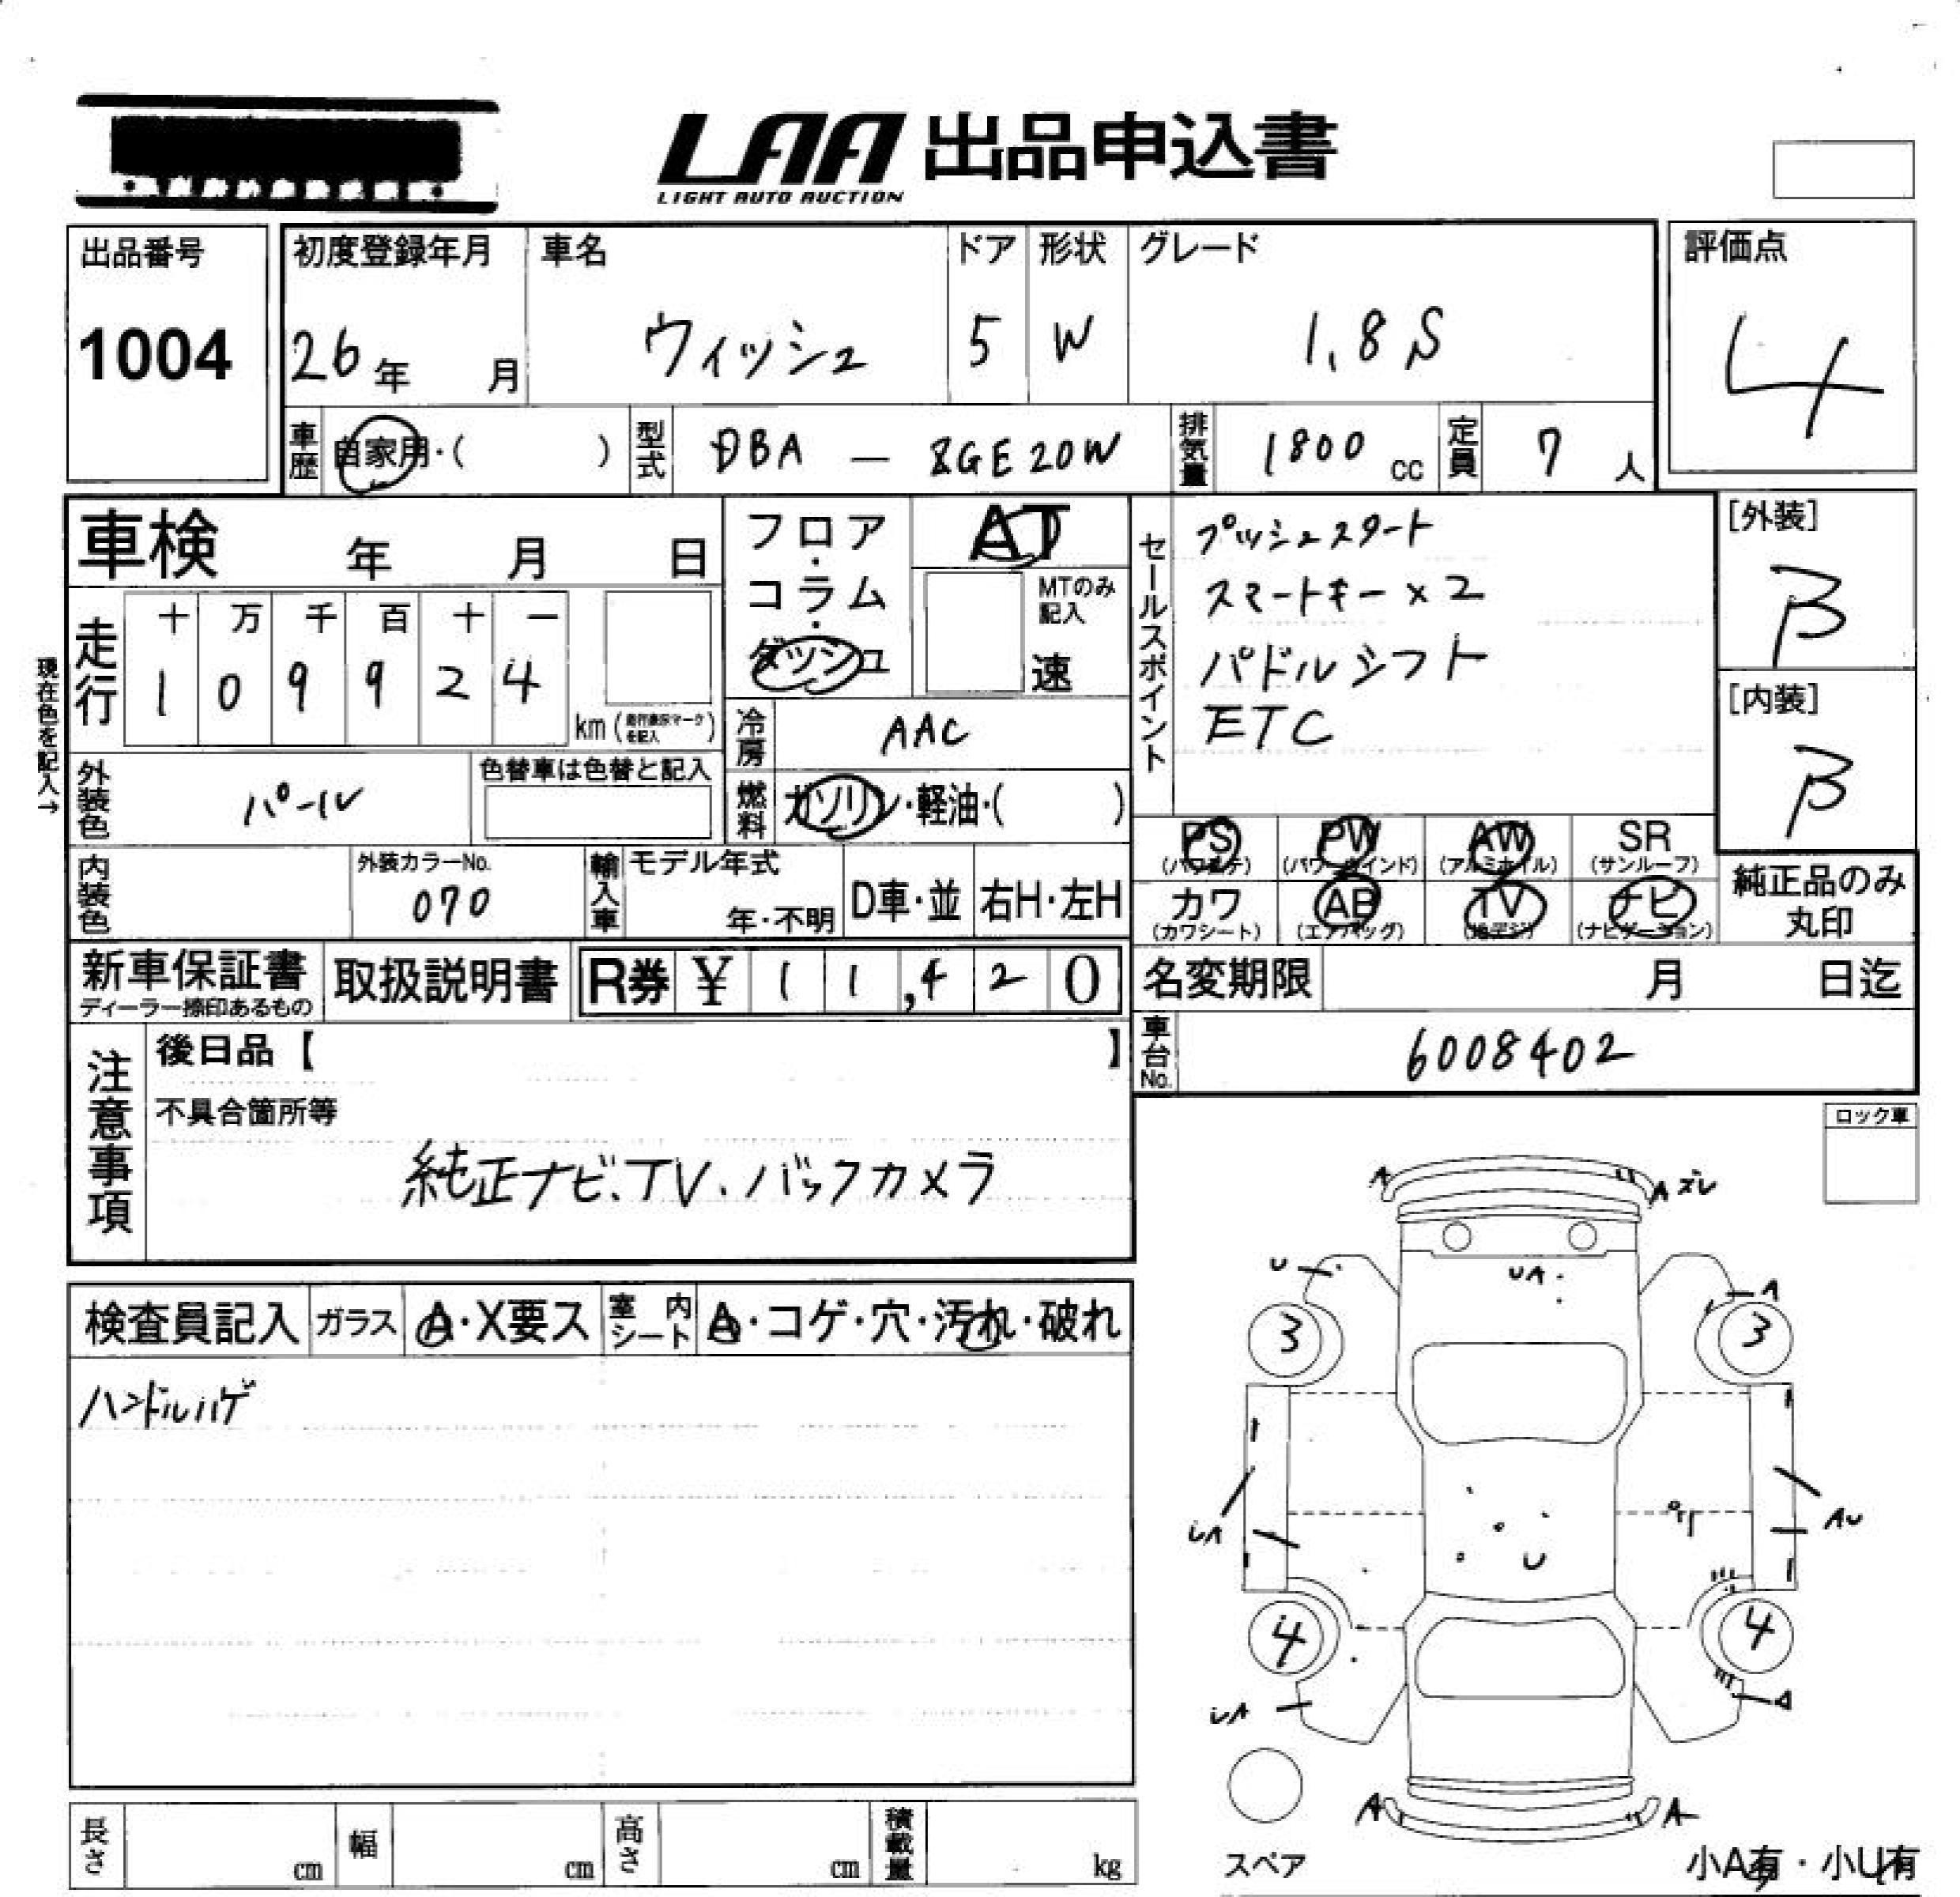 LAA 出品申込書
LIGHT AUTO AUCTION
出品番号
1004
初度登録年月
26年 月
車名
ウィッシュ
ドア
5
形状
W
グレード
1.8S
評価点
4
車歴 自家用・( )
型式 DBA — ZGE20W
排気量 1800 cc
定員 7 人
車検 年 月 日
フロア・コラム・ダッシュ
AT
MTのみ記入
速
セールスポイント
プッシュスタート
スマートキー×2
パドルシフト
ETC
[外装]
B
[内装]
B
現在色を記入→
走行
十 万 千 百 十 一
1 0 9 9 2 4
km (走行表示マークを記入)
冷房 AAC
燃料 ガソリン・軽油・( )
外装色 パール
色替車は色替と記入
内装色
外装カラーNo.
070
輸入車
モデル年式
年・不明
D車・並
右H・左H
PS (パワステ)
PW (パワーウインド)
AW (アルミホイル)
SR (サンルーフ)
カワ (カワシート)
AB (エアバッグ)
TV (地デジ)
ナビ (ナビゲーション)
純正品のみ
丸印
新車保証書
ディーラー捺印あるもの
取扱説明書
R券 ¥ 1 1,4 2 0
名変期限 月 日迄
車台No. 6008402
注意事項
後日品【 】
不具合箇所等
純正ナビ、TV、バックカメラ
ロック車
検査員記入
ガラス A・X要ス
室内シート A・コゲ・穴・汚れ・破れ
ハンドルハゲ
A
A ズレ
U
UA
A
3
3
UA
AU
U
4
4
UA
A
A
A
スペア
小A有・小U有
長さ cm
幅 cm
高さ cm
積載量 kg